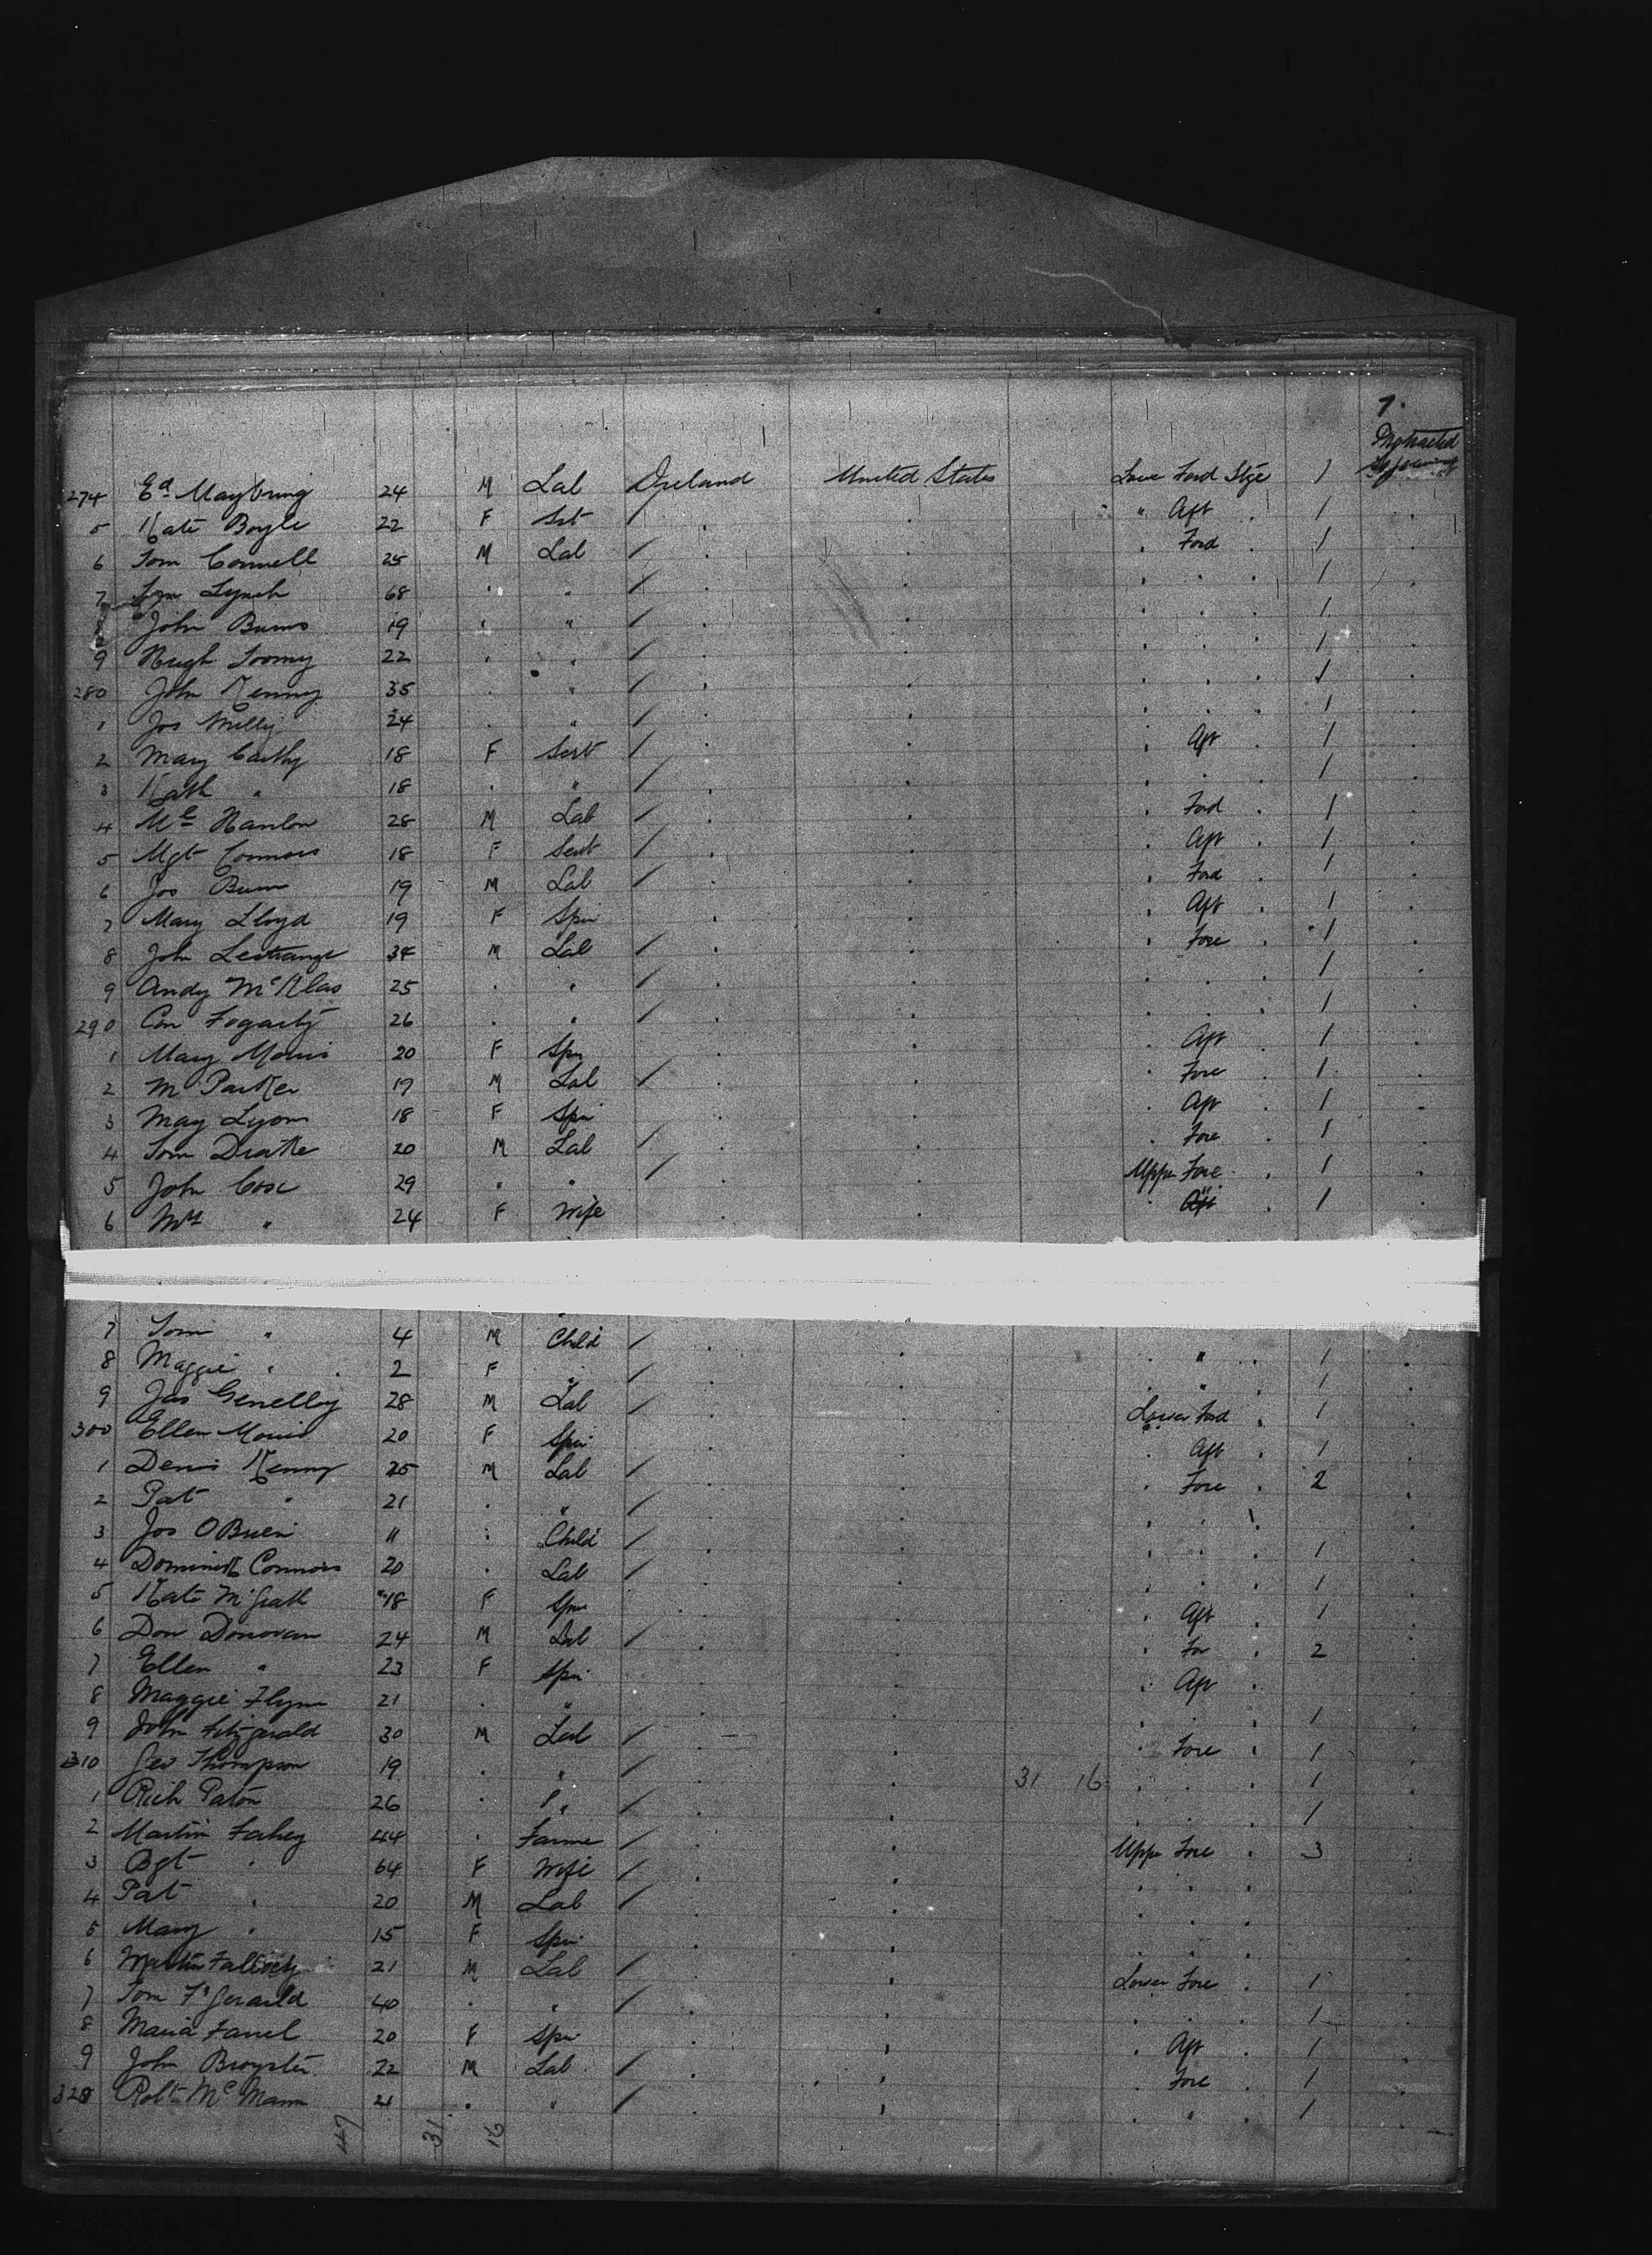 7.
Protracted
274 Ed Maybring 24 M Lab Ireland United States Lower Forwd Stge 1
5 Kate Boyle 22 F Svt / . . " Aft . 1 .
6 Tom Connell 25 M Lab / . . . Forwd . 1 .
7 Tom Lynch 68 . " / . . . . . 1 .
John Burns 19 . " / . . . . . 1 .
9 Hugh Toomy 22 . . / . . . . . 1 .
280 John Kenny 35 . " / . . . . . 1 .
1 Jos Milly 24 . " / . . . . . 1 .
2 Mary Carthy 18 F Servt / . . . Aft . 1 .
3 Kath " 18 . " / . . . . . 1 .
4 Ml Hanlon 28 M Lab / . . . Ford . 1 .
5 Mgt Connors 18 F Servt / . . . Aft . 1 .
6 Jos Burn 19 M Lab / . . . Ford . 1 .
7 Mary Lloyd 19 F Spin . . . Aft . 1 .
8 John Lestrange 34 M Lab / . . . Fore . 1 .
9 Andy McKlas 25 . . / . . . . . 1 .
290 Con Fogarty 26 . " / . . . . . 1 .
1 Mary Morris 20 F Spin . . . Aft . 1 .
2 M Parker 17 M Lab / . . . Fore . 1 .
3 May Lyons 18 F Spin . . . Aft . 1 .
4 Tom Drake 20 M Lab / . . . Fore . 1 .
5 John Cox 29 " " / . . Upper Fore . 1 .
6 Mrs " 24 F Wife . . . Aft . 1 .
7 Tom " 4 M Child / . . . " . 1 .
8 Maggie " 2 F . / . . . " . 1 .
9 Jas Genelley 28 M Lab / . . Lower Ford . 1 .
300 Ellen Morris 20 F Spin . . . Aft . 1 .
1 Denis Kenny 25 M Lab / . . . Fore . 2 .
2 Pat " 21 . " / . . . . . .
3 Jos OBrien 11 . Child / . . . . . 1 .
4 Dominick Connors 20 . Lab / . . . . . 1 .
5 Kate McGrath 18 F Spin . . . Aft . 1 .
6 Don Donovan 24 M Lab / . . . For . 2 .
7 Ellen " 23 F Spin . . . Aft . .
8 Maggie Flynn 21 . " . . . . . 1 .
9 John Fitzgerald 30 M Lab / . . . Fore . 1 .
310 Geo Thompson 19 . " / . . 31 16 . . . 1 .
1 Rich Paton 26 . " / . . . . . 1 .
2 Martin Fahey 44 . Farmer / . . Upper Fore . 3 .
3 Bgt " 64 F Wife / . . . . . .
4 Pat " 20 M Lab / . . . . . .
5 Mary " 15 F Spin . . . . . .
6 Martin 21 M Lab / . . Lower Fore . 1 .
7 Tom FtGerarld 40 . " / . . . . . 1 .
8 Maria Farrel 20 F Spin . . . Aft . 1 .
9 John 22 M Lab / . . . Fore . 1 .
320 Robt McMann 21 . " / . . . " . 1 .
47 31 16